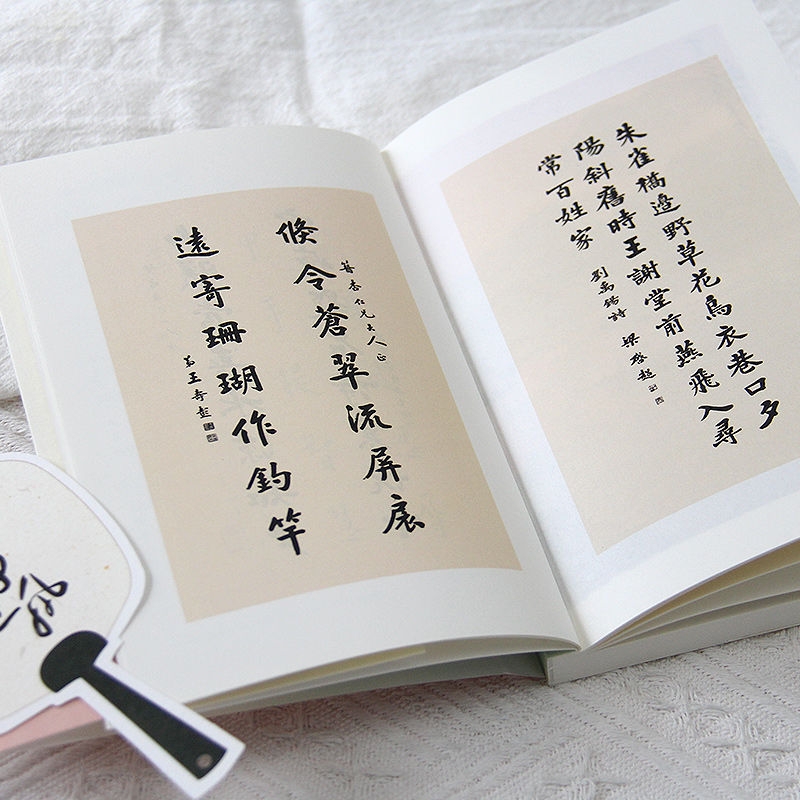 朱雀橋邊野草花烏衣巷口夕
陽斜舊時王謝堂前燕飛入尋
常百姓家
劉禹錫詩 梁啓超
仁兄大人正
倏令蒼翠流屏扆
遠寄珊瑚作釣竿
弟王